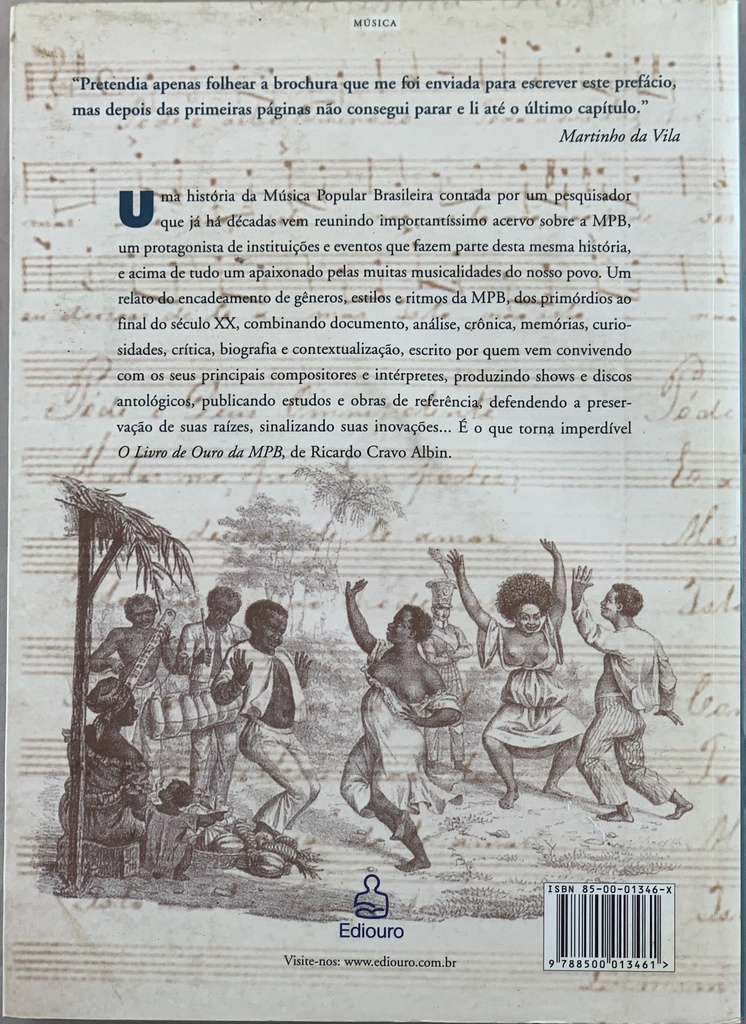 MÚSICA
“Pretendia apenas folhear a brochura que me foi enviada para escrever este prefácio,
mas depois das primeiras páginas não consegui parar e li até o último capítulo.”
Martinho da Vila
Uma história da Música Popular Brasileira contada por um pesquisador
que já há décadas vem reunindo importantíssimo acervo sobre a MPB,
um protagonista de instituições e eventos que fazem parte desta mesma história,
e acima de tudo um apaixonado pelas muitas musicalidades do nosso povo. Um
relato do encadeamento de gêneros, estilos e ritmos da MPB, dos primórdios ao
final do século XX, combinando documento, análise, crônica, memórias, curio-
sidades, crítica, biografia e contextualização, escrito por quem vem convivendo
com os seus principais compositores e intérpretes, produzindo shows e discos
antológicos, publicando estudos e obras de referência, defendendo a preser-
vação de suas raízes, sinalizando suas inovações... É o que torna imperdível
O Livro de Ouro da MPB, de Ricardo Cravo Albin.
Ediouro
Visite-nos: www.ediouro.com.br
ISBN 85-00-01346-X
9 788500 013461 >